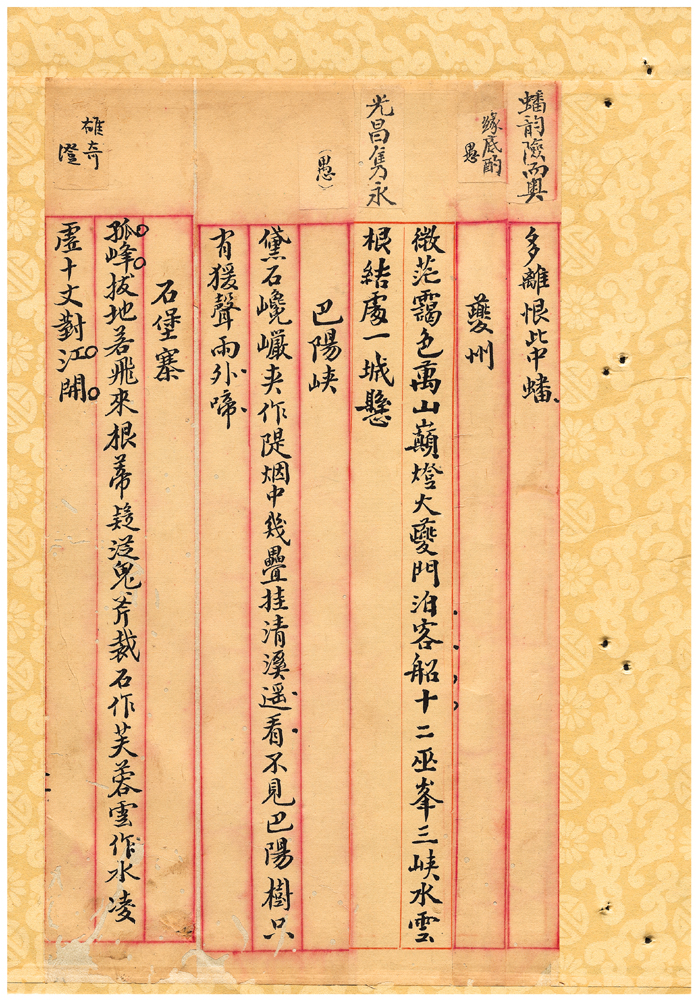 蟠韵險而奥
多離恨此中蟠
緣底酌
愚
夔州
微茫靄色萬山巔燈火夔門泊客船十二巫峯三峽水雲
光昌雋永
根結處一城懸
(愚)
巴陽峽
黛石巉巖夾作隄烟中幾疊挂清溪遥看不見巴陽樹只
有猨聲雨外啼
石堡寨
雄奇
孤峰拔地若飛來根蒂疑從鬼斧裁石作芙蓉雲作水凌
澄
虛十丈對江開